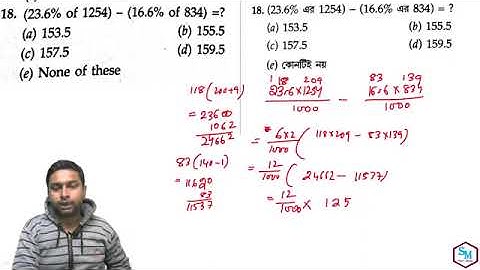 18. (23.6% of 1254) – (16.6% of 834) =?
(a) 153.5 (b) 155.5
(c) 157.5 (d) 159.5
(e) None of these
18. (23.6% এর 1254) – (16.6% এর 834) = ?
(a) 153.5 (b) 155.5
(c) 157.5 (d) 159.5
(e) কোনটিই নয়
118 (200+9)
= 23600
1062
24662
83 (140-1)
= 11620
83
11537
118 209 83 139
23.6 × 1254 / 1000 – 16.6 × 834 / 1000
= 6×2 / 1000 ( 118×209 – 83×139 )
= 12 / 1000 ( 24662 – 11537 )
= 12 / 1000 × 125
SM